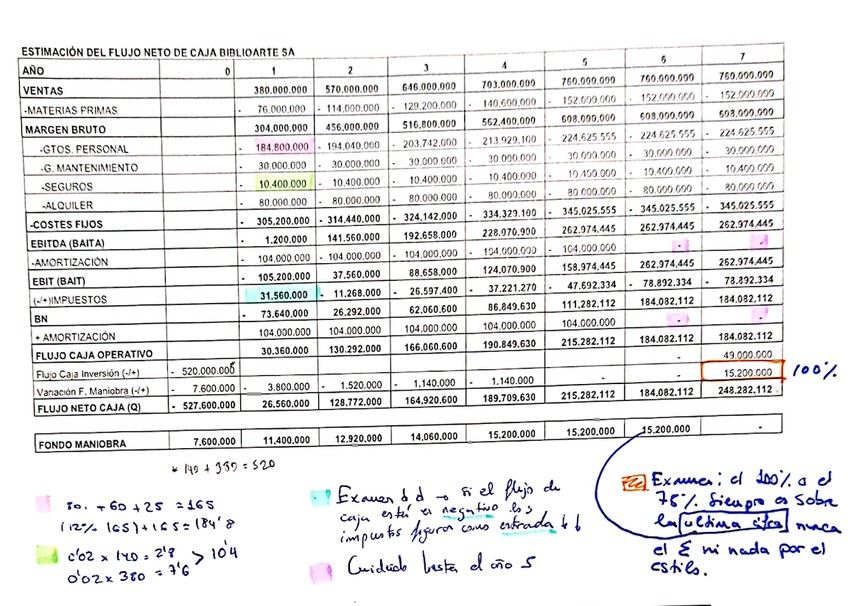 ESTIMACIÓN DEL FLUJO NETO DE CAJA BIBLIOARTE SA
AÑO 0 1 2 3 4 5 6 7
VENTAS 380.000.000 570.000.000 646.000.000 703.000.000 760.000.000 760.000.000 760.000.000
-MATERIAS PRIMAS - 76.000.000 - 114.000.000 - 129.200.000 - 140.600.000 - 152.000.000 - 152.000.000 - 152.000.000
MARGEN BRUTO 304.000.000 456.000.000 516.800.000 562.400.000 608.000.000 608.000.000 608.000.000
-GTOS. PERSONAL - 184.800.000 - 194.040.000 - 203.742.000 - 213.929.100 - 224.625.555 - 224.625.555 - 224.625.555
-G. MANTENIMIENTO - 30.000.000 - 30.000.000 - 30.000.000 - 30.000.000 - 30.000.000 - 30.000.000 - 30.000.000
-SEGUROS - 10.400.000 - 10.400.000 - 10.400.000 - 10.400.000 - 10.400.000 - 10.400.000 - 10.400.000
-ALQUILER - 80.000.000 - 80.000.000 - 80.000.000 - 80.000.000 - 80.000.000 - 80.000.000 - 80.000.000
-COSTES FIJOS - 305.200.000 - 314.440.000 - 324.142.000 - 334.329.100 - 345.025.555 - 345.025.555 - 345.025.555
EBITDA (BAITA) - 1.200.000 141.560.000 192.658.000 228.070.900 262.974.445 262.974.445 262.974.445
-AMORTIZACIÓN - 104.000.000 - 104.000.000 - 104.000.000 - 104.000.000 - 104.000.000 - -
EBIT (BAIT) - 105.200.000 37.560.000 88.658.000 124.070.900 158.974.445 262.974.445 262.974.445
(-/+)IMPUESTOS 31.560.000 - 11.268.000 - 26.597.400 - 37.221.270 - 47.692.334 - 78.892.334 - 78.892.334
BN - 73.640.000 26.292.000 62.060.600 86.849.630 111.282.112 184.082.112 184.082.112
+ AMORTIZACIÓN 104.000.000 104.000.000 104.000.000 104.000.000 104.000.000 - -
FLUJO CAJA OPERATIVO 30.360.000 130.292.000 166.060.600 190.849.630 215.282.112 184.082.112 184.082.112
Flujo Caja Inversión (-/+) - 520.000.000 * 49.000.000
Variación F. Maniobra (-/+) - 7.600.000 - 3.800.000 - 1.520.000 - 1.140.000 - 1.140.000 - - 15.200.000 100%
FLUJO NETO CAJA (Q) - 527.600.000 26.560.000 128.772.000 164.920.600 189.709.630 215.282.112 184.082.112 248.282.112
FONDO MANIOBRA 7.600.000 11.400.000 12.920.000 14.060.000 15.200.000 15.200.000 15.200.000 -
* 140 + 380 = 520
80 + 60 + 25 = 165
(12% 165) + 165 = 184'8
0'02 x 140 = 2'8
0'02 x 380 = 7'6 > 10'4
Examen → si el flujo de
caja está es negativo los
impuestos figuran como entrada
Cuidado hasta el año 5
Examen: el 100% o el
75% siempre es sobre
la última cifra nunca
el Σ ni nada por el
estilo.